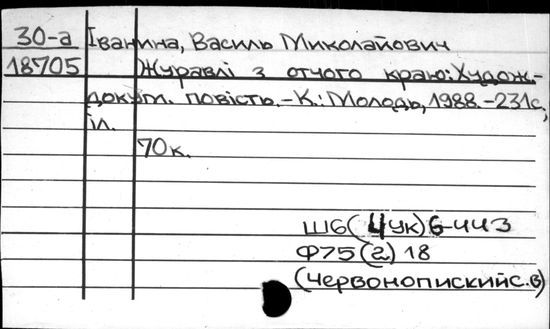 30-а Іванина, Василь Миколайович
18705 Журавлі з отчого краю: Худож.-
докум. повість. - К.: Молодь, 1988. - 231с.,
іл.
70к.
Ш6(4УК)6-443
Ф75(2)18
(Червонопискийс.в)